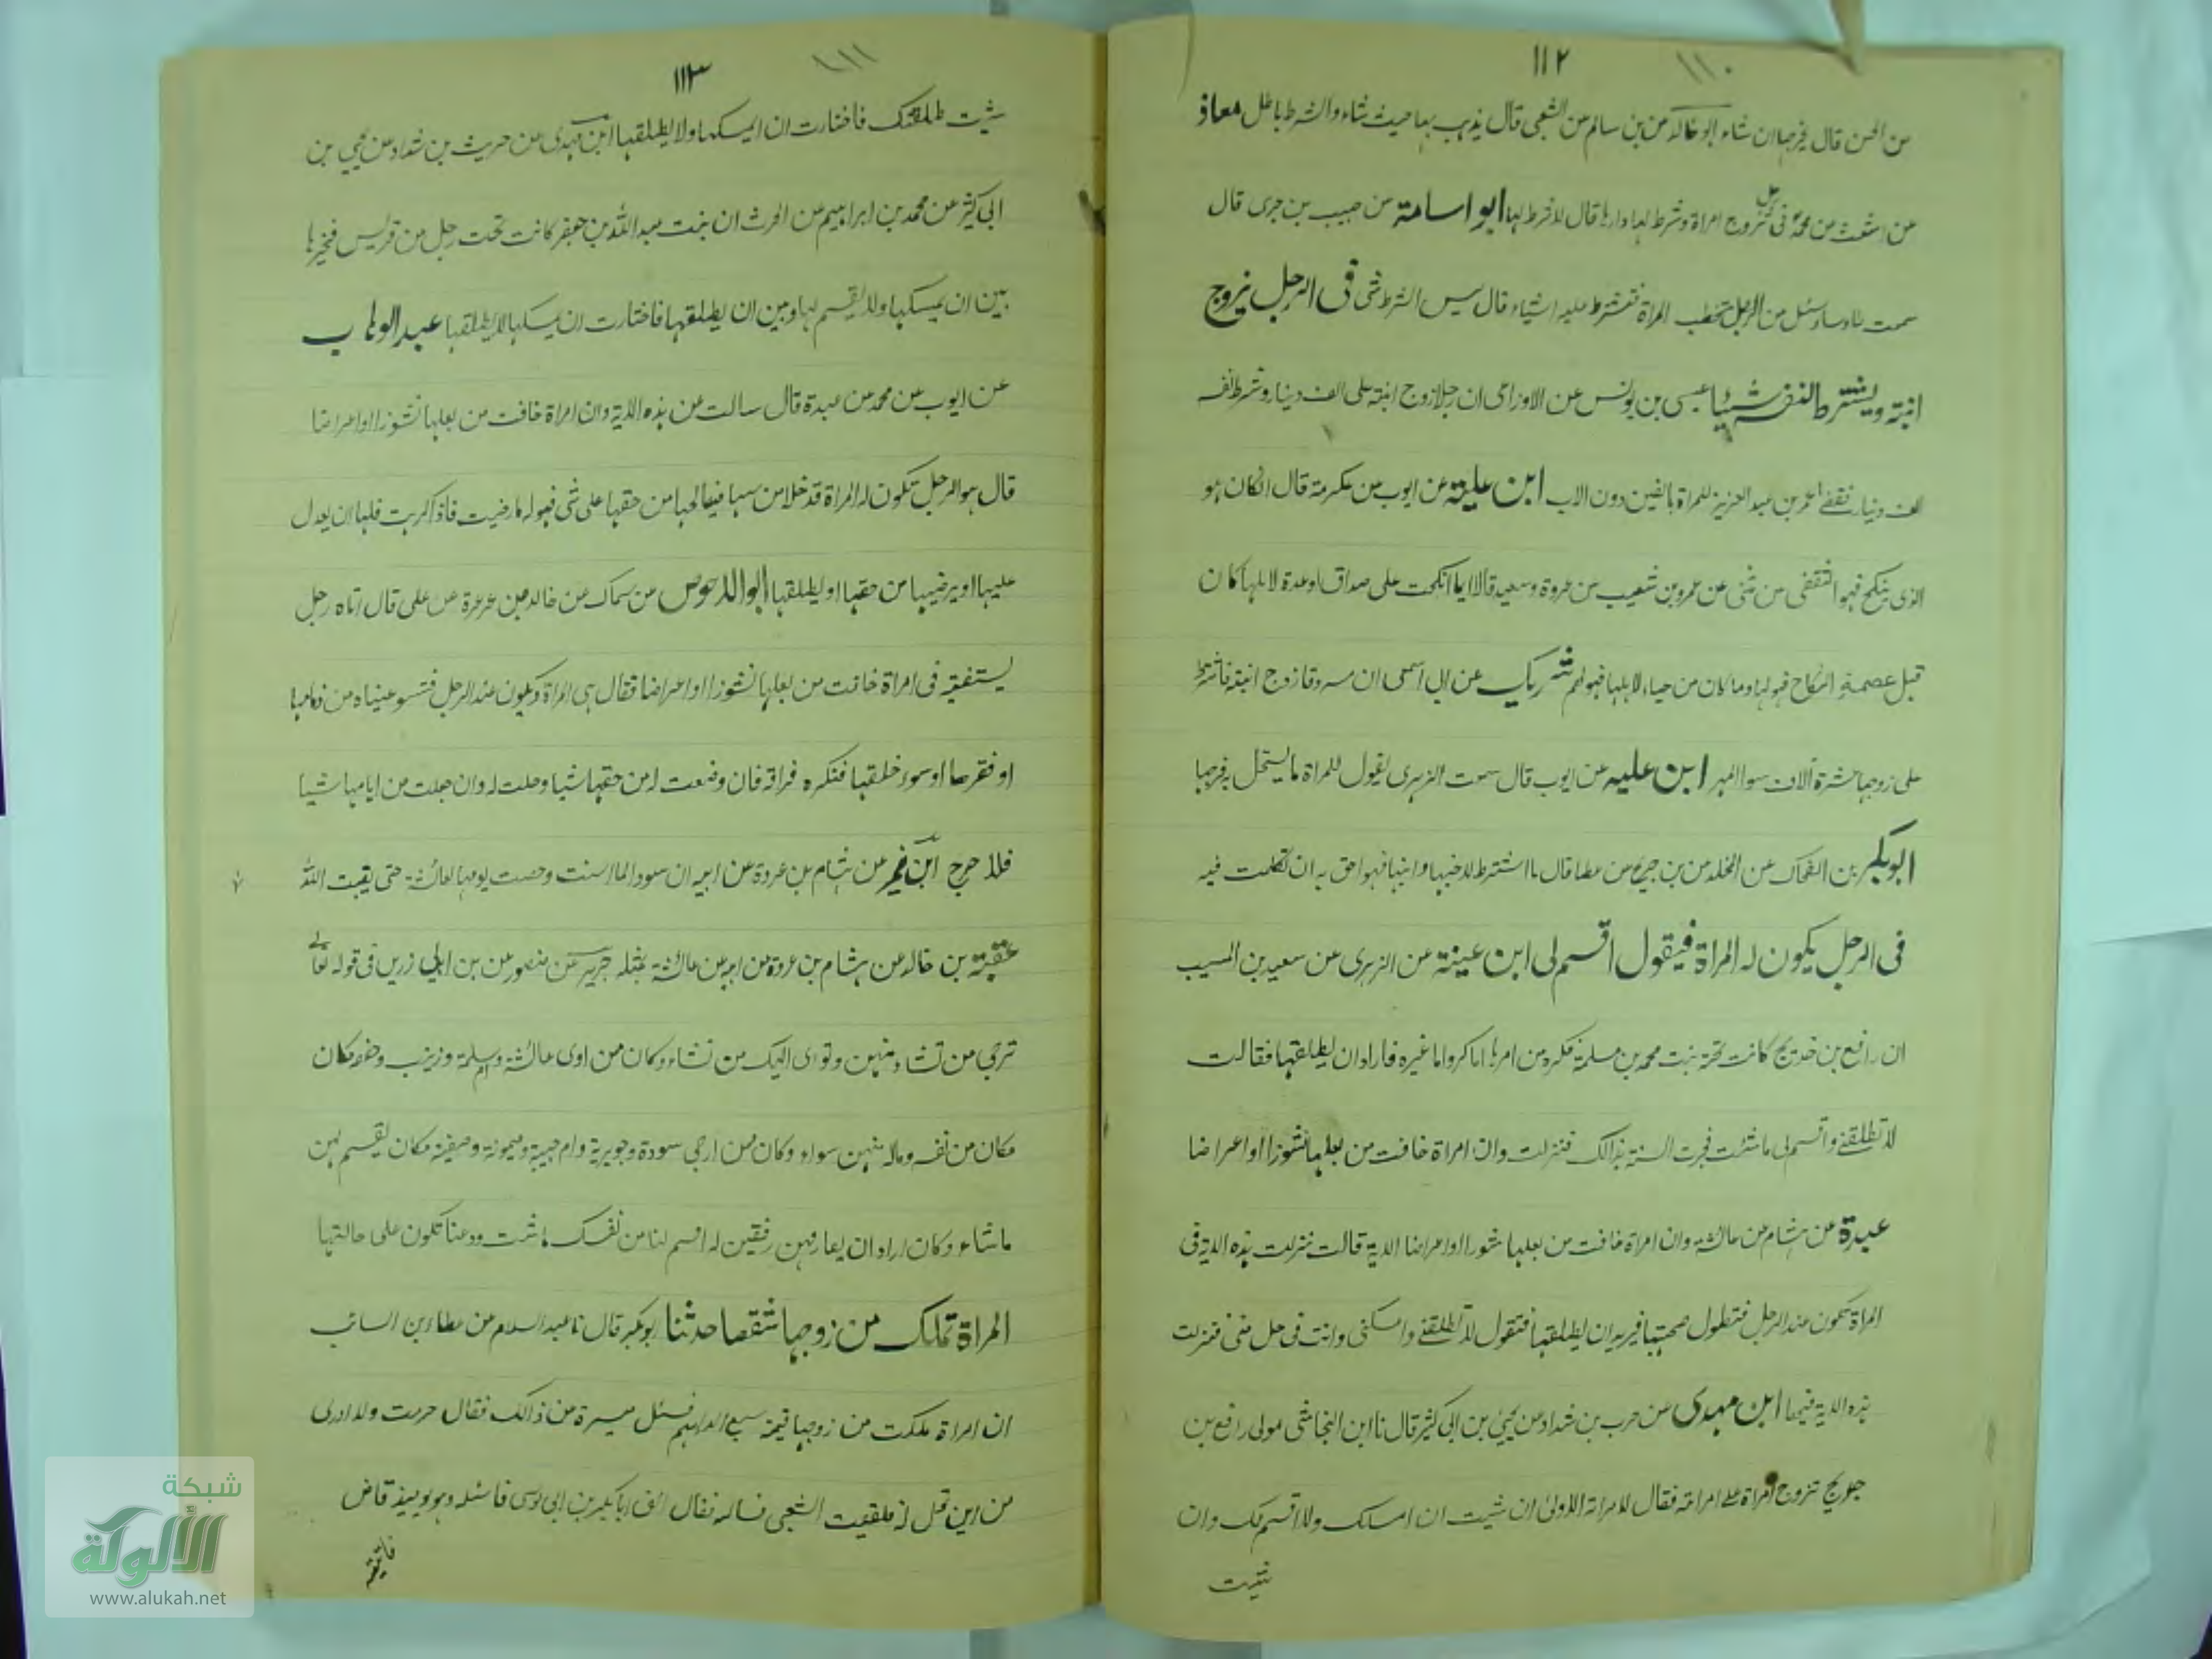 ١١٠
١١٢
من الحسن قال يخرجها ان شاء ابو خالد من بن سالم من الشعبى قال يذهب بها حيث شاء والشرط باطل معاذ
من اشعث من محمد فى رجل تزوج امراة وشرط لها دارها قال لا شرط لها ابو اسامة من حبيب بن جرى قال
سمعت طاوسا وسئل من الرجل يخطب المراة فتشترط عليه اشياء قال ليس الشرط شى فى الرجل يزوج
ابنته ويشترط لنفسه شيئا عيسى بن يونس عن الاوزاعى ان رجلا زوج ابنته على الف دينار وشرط لنفسه
الف دينار فقضے عمر بن عبد العزيز للمراة بالفين دون الاب ابن علية عن ايوب من عكرمة قال ان كان هو
الذى ينكح فهو الثقفى من مثنى عن عمرو بن شعيب من عروة وسعيد قالا ايما انكحت على صداق او عدة لاهلها كان
قبل عصمة النكاح فهو لها وما كان من حباء لاهلها فهو لهم شريك عن ابى اسحق ان مسروقا زوج ابنته فاشترط
على زوجها عشرة آلاف سوا المهر ابن عليه عن ايوب قال سمعت الزهرى يقول للمراة ما يستحل به فرجها
ابو بكر بن الضحاك عن المخلد من بن جريج من عطا قال ما اشترط لاخيها وابيها فهو احق به ان تكلمت فيه
فى الرجل يكون له المراة فيقول اقسم لى ابن عينة عن الزهرى عن سعيد بن المسيب
ان رافع بن خديج كانت تحته بنت محمد بن مسلمة فكره من امرها اما كبرا واما غيره فاراد ان يطلقها فقالت
لا تطلقنے واقسم لى ما شئت فجرت السنة بذالك فنزلت وان امراة خافت من بعلها نشوزا او اعراضا
عبدة عن هشام من عائشة وان امراة خافت من بعلها نشورا او اعراضا الاية قالت نزلت هذه الاية فى
المراة تكون عند الرجل فتطول صحبتها فيريد ان يطلقها فتقول لا تطلقنے وامسكنى وانت فى حل منى فنزلت
هذه الاية فيهما ابن مهدى من حرب بن شداد من يحيى بن ابى كثير قال نا ابن النجاشى مولى رافع بن
جويج تزوج امراة على امراته فقال لامراته الاولى ان شيت ان امسك ولا اقسم لك وان
شيت
١١١
١١٣
شيت طلقتك فاختارت ان يمسكها ولا يطلقها ابن مهدى من حريث بن شداد من يحيى بن
ابى كثير من محمد بن ابراهيم من الحرث ان بنت عبد الله بن جعفر كانت تحت رجل من قريش فخيرها
بين ان يمسكها ولا يقسم لها وبين ان يطلقها فاختارت ان يمسكها لا يطلقها عبد الوهاب
عن ايوب من محمد من عبدة قال سالت من هذه الاية وان امراة خافت من بعلها نشوزا او اعراضا
قال هو الرجل تكون له المراة قد خلا من سنها فيصالحها من حقها على شى فهو له ما رضيت فاذا كرهت فلها ان يعدل
عليها او يرضيها من حقها او يطلقها ابو الاحوص من سماك من خالد بن عرعرة عن على قال اتاه رجل
يستفتيه فى امراة خافت من بعلها نشوزا او اعراضا فقال هى المراة تكون عند الرجل فتنبو عيناه من دمامتها
او فقرها او سوء خلقها فتكره فراقه فان وضعت له من حقها شيا وحلت له وان جعلت من ايامها شيا
فلا حرج ابن نمير من هشام بن عروة عن ابيه ان سودة لما اسنت وهبت يومها لعائشة حتى يقيت الله
عقبة بن خالد من هشام بن عروة من ابيه من عائشة بمثله جرير من منصور من بن ابى رزين فى قوله تعالى
ترجى من تشاء منهن وتوى اليك من تشاء وكان من اوى عائشة وام سلمة وزينب وحفصة كان
مكان من نفسه وماله منهن سواء وكان من ارجى سودة وجويرية وام حبيبة وميمونة وصفية مكان يقسم لهن
ماشاء وكان اراد ان يفارقهن فقلن له اقسم لنا من نفسك ما شت ودعنا تكون على حالتها
المراة تملك من زوجها شقصا حدثنا ابو بكر قال نا عبد السلام من عطاء بن السائب
ان امراة ملكت من زوجها قيمة سبع الدراهم فسئل ميسرة من ذالك فقال حرمت ولا ادرى
من اين تحل له فلقيت الشعبى فساله فقال الق ابا بكر بن ابى موسى فاسئله وهو يوميذ قاض
فاتيته
شبكة
الألوكة
www.alukah.net